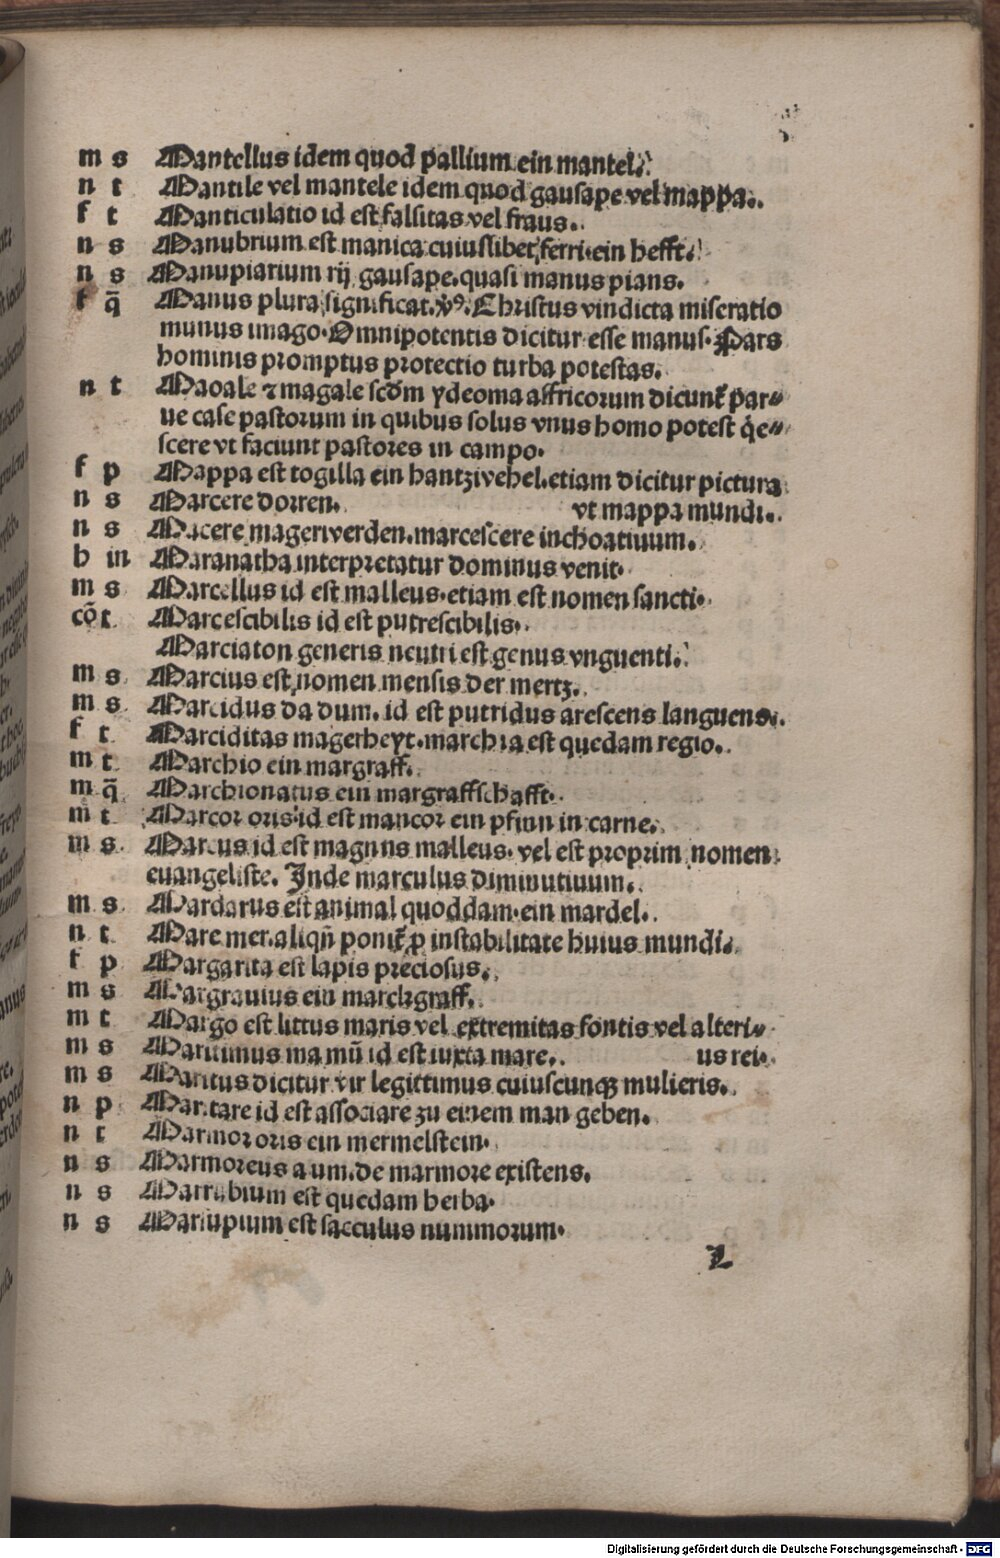 m s Mantellus idem quod pallium ein mantel.
n t Mantile vel mantele idem quod gausape vel mappa.
f t Manticulatio id est falsitas vel fraus.
n s Manubrium est manica cuiuslibet ferri. ein hefft.
n s Manupiarium rij gausape. quasi manus pians.
f q̄ Manus plura significat. v̓ꝰ. Christus vindicta miseratio
munus imago. Omnipotentis dicitur esse manus. Pars
hominis promptus protectio turba potestas.
n t Maoale ⁊ magale scd̄m ydeoma affricorum dicunt̄ par⸗
ue case pastorum in quibus solus vnus homo potest q̇e⸗
scere vt faciunt pastores in campo.
f p Mappa est togilla ein hantzwehel. etiam dicitur pictura
n s Marcere dorren. vt mappa mundi.
n s Macere mager werden. marcescere inchoatiuum.
h in Maranatha interpretatur dominus venit.
m s Marcellus id est malleus. etiam est nomen sancti.
cō t Marcescibilis id est putrescibilis.
Marciaton generis neutri est genus vnguenti.
m s Marcius est nomen mensis der mertz.
m s Marcidus da dum. id est putridus arescens languens.
f t Marciditas magerheyt. marchia est quedam regio.
m t Marchio ein margraff.
m q̄ Marchionatus ein margraffschafft.
m t Marcor oris id est mancor ein pfinn in carne.
m s Marcus id est magnus malleus. vel est proprim nomen
euangeliste. Inde marculus diminutiuum.
m s Mardarus est animal quoddam. ein mardel.
n t Mare mer. aliqn̄ ponit̄ ꝓ instabilitate huius mundi.
f p Margarita est lapis preciosus.
m s Margrauius ein marckgraff.
m t Margo est littus maris vel extremitas fontis vel alteri⸗
m s Maritimus ma mū id est iuxta mare. us rei.
m s Maritus dicitur vir legittimus cuiuscunqꝫ mulieris.
n p Maritare id est associare zu einem man geben.
n t Marmor oris ein mermelstein.
n s Marmoreus a um. de marmore existens.
n s Marrubium est quedam herba.
n s Marsupium est sacculus nummorum.
L
Digitalisierung gefördert durch die Deutsche Forschungsgemeinschaft - DFG